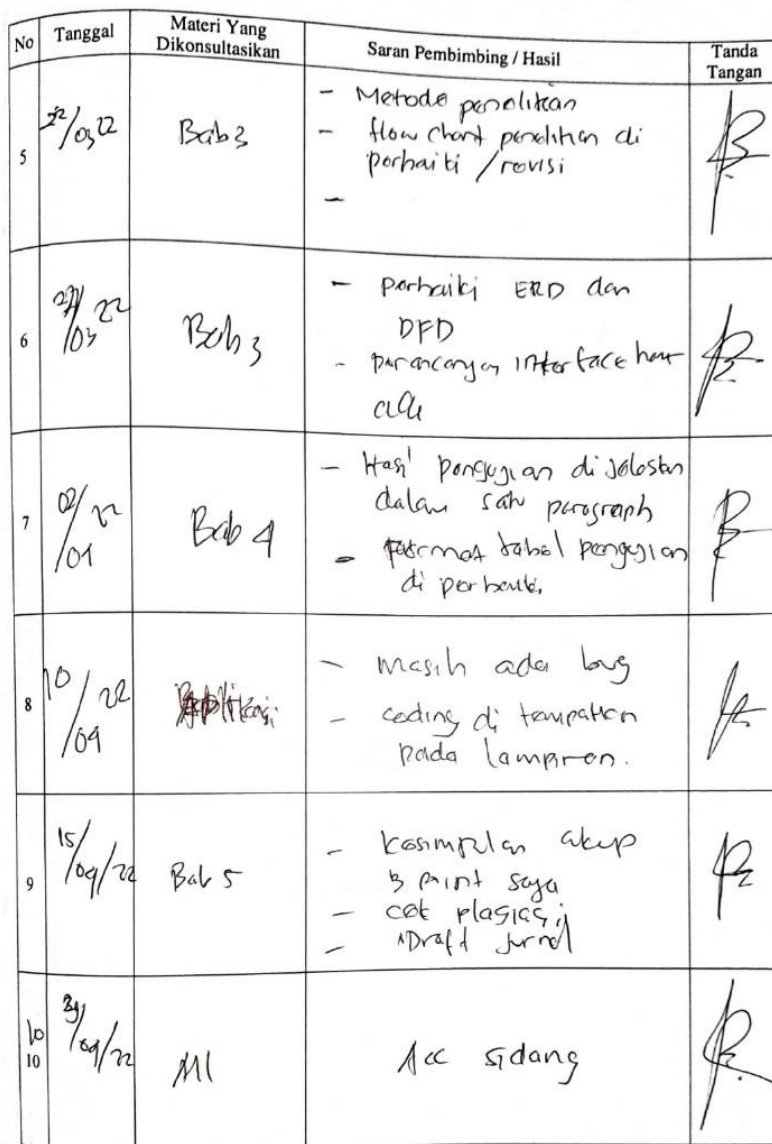 No Tanggal Materi Yang Dikonsultasikan Saran Pembimbing / Hasil Tanda Tangan
5 22/03 22 Bab 3 - Metode penelitian
- flow chart penelitian di
perbaiki / revisi
-
6 /03 22 Bab 3 - perbaiki ERD dan
DFD
- perancangan interface
7 02/04 22 Bab 4 - Hasil pengujian di jelaskan
dalam satu paragraph
- format tabel pengujian
di perbaiki.
8 10/04 22 Aplikasi - masih ada bug
- coding di tempatkan
pada lampiran.
9 15/04/22 Bab 5 - kesimpulan cukup
3 point saja
- cek plagiasi
- Draft jurnal
10
10 /04/22 All Acc sidang